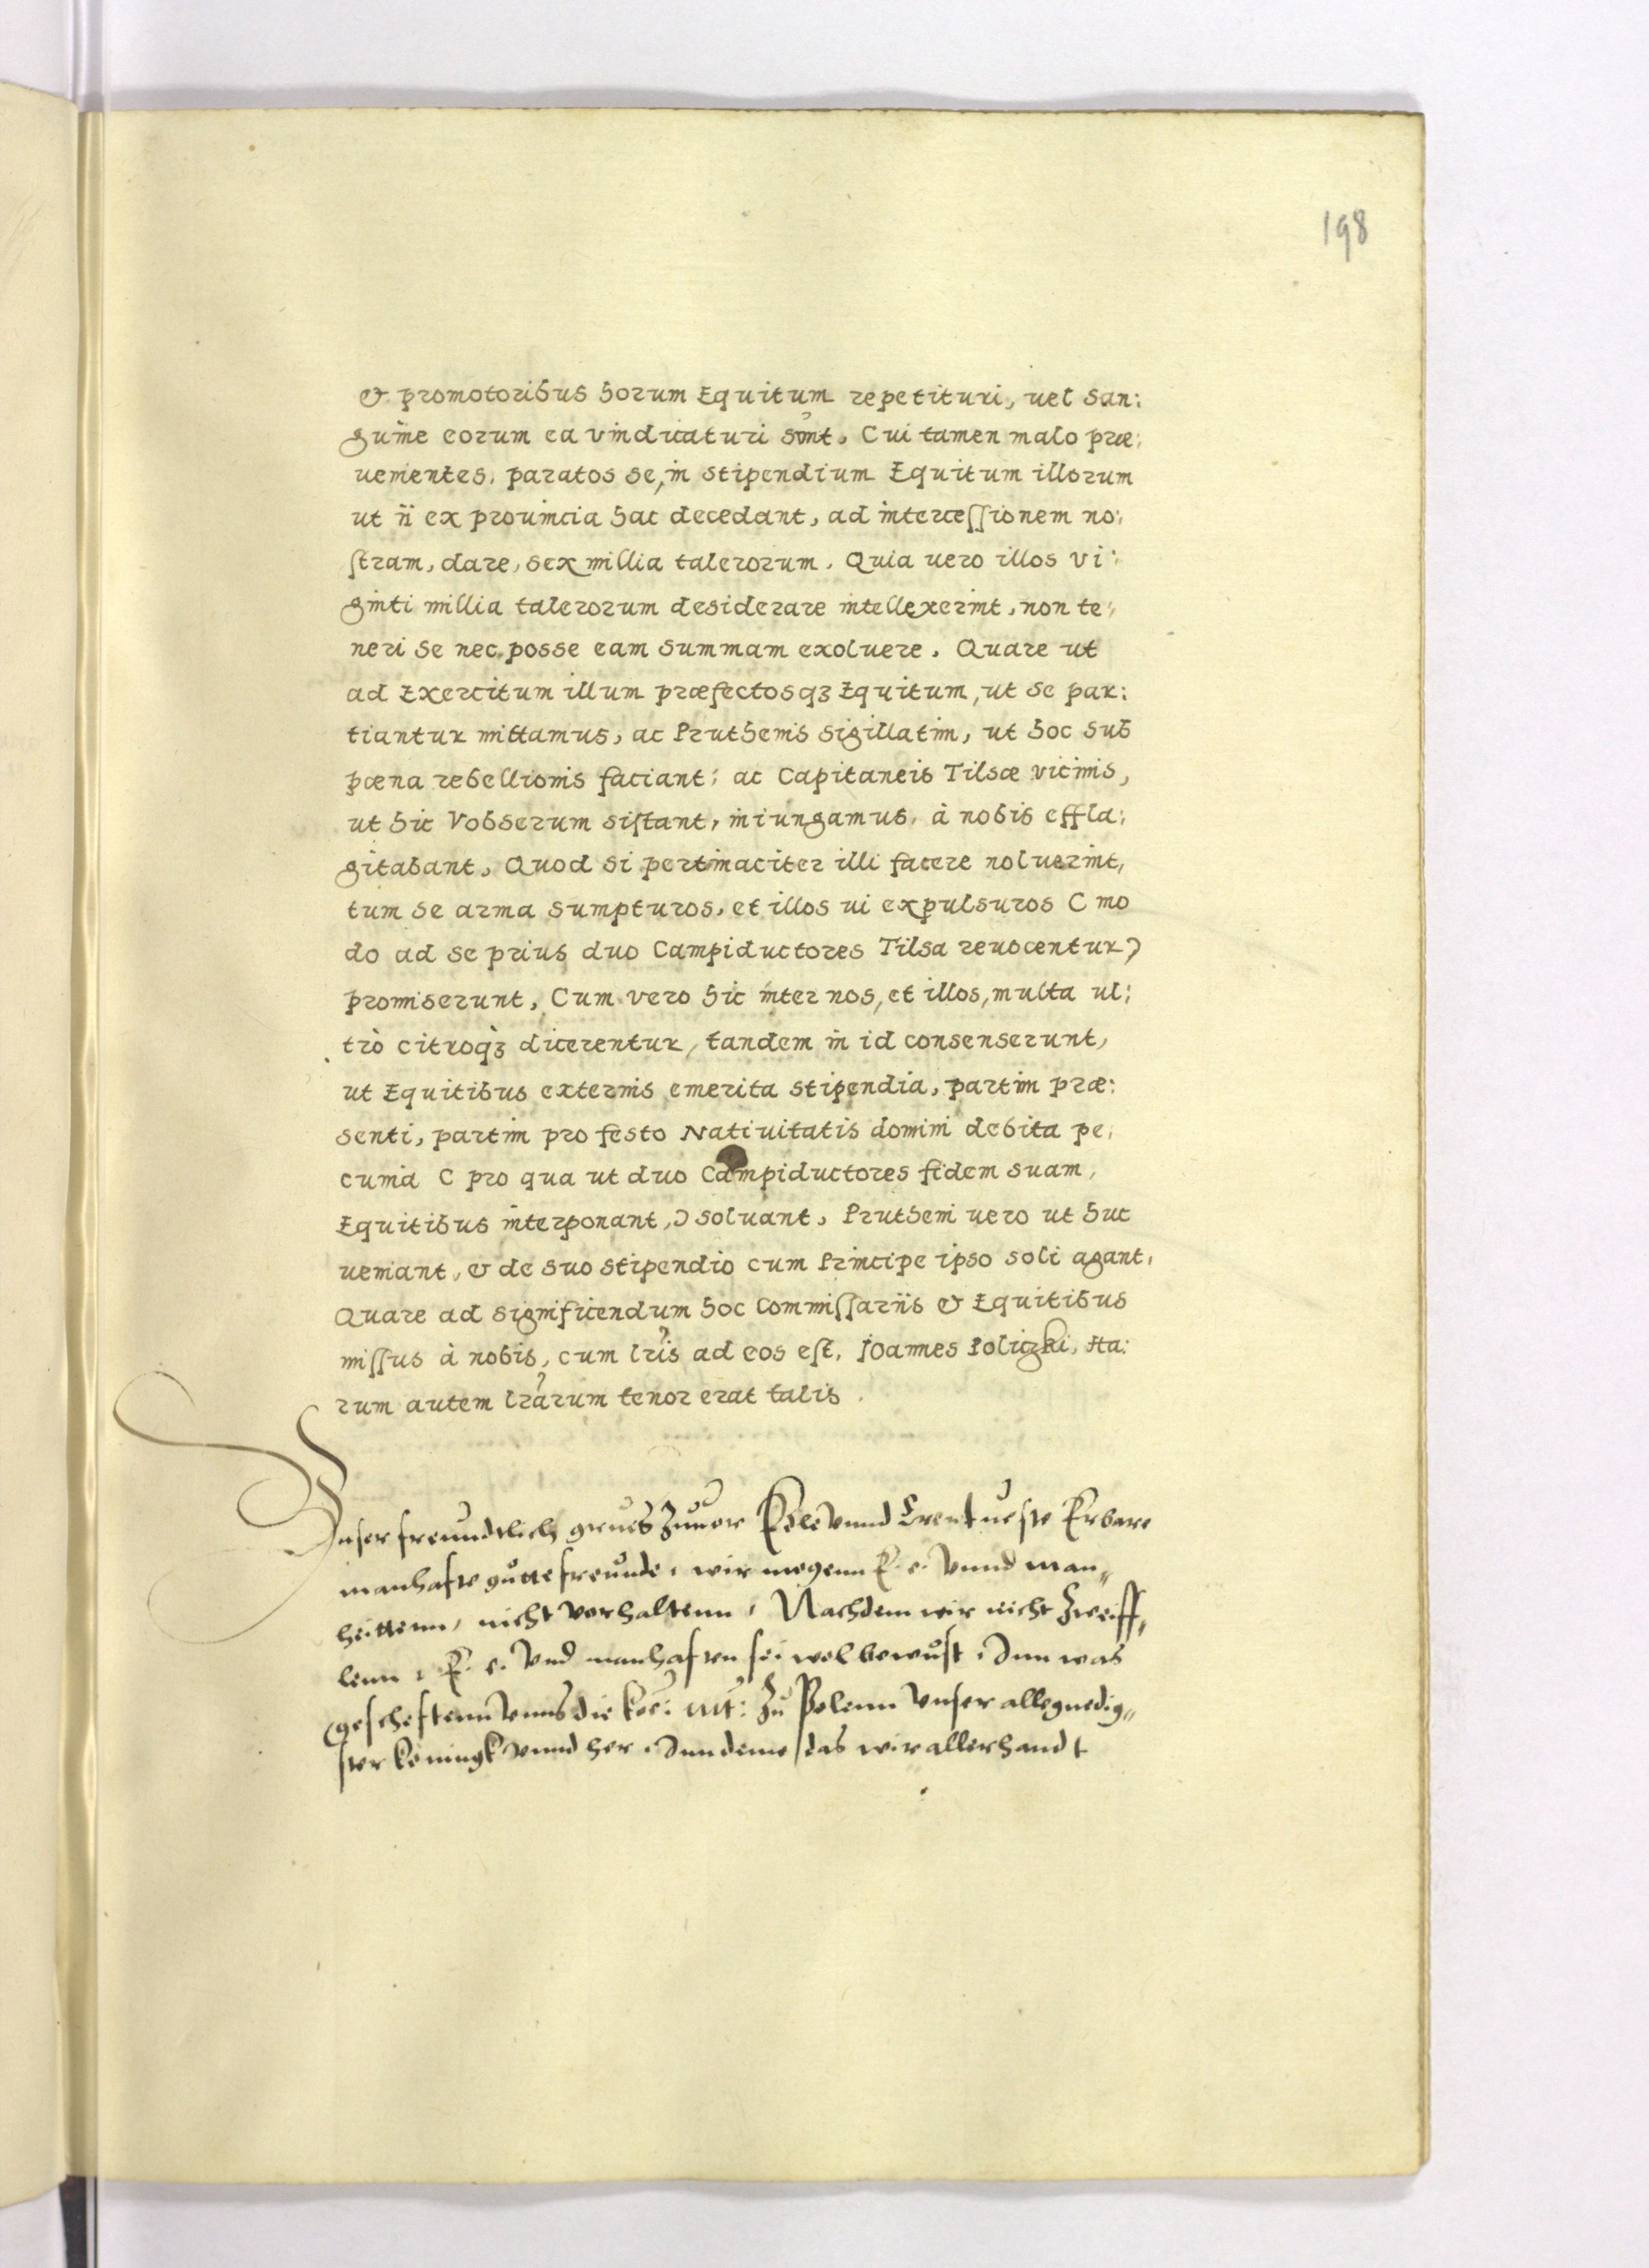 198
& promotoribus horum Equitum repetituri, uel san:
guine eorum ea vindicaturi sint. Cui tamen malo præ:
uenientes, paratos se, in stipendium Equitum illorum
ut ii ex prouincia hac decedant, ad intercessionem no:
stram, dare, sex millia talerorum. Quia uero illos vi:
ginti millia talerorum desiderare intellexerint, non te:
neri se nec posse eam summam exoluere. Quare ut
ad Exercitum illum præfectosqȝ Equitum, ut se par:
tiantur mittamus, ac Prutheni͏s sigillatim, ut hoc sub
pœna rebellionis faciant: ac Capitaneis Tilsæ vicinis,
ut hic Vobserum sistant, iniungamus, à nobis effla:
gitabant, Quod si pertinaciter illi facere noluerint,
tum se arma sumpturos, et illos ui expulsuros ( mo
do ad se prius duo Campiductores Tilsa reuocentur)
promiserunt, Cum vero hic inter nos, et illos, multa ul:
trò citroqȝ̀ dicerentur, tandem in id consenserunt,
ut Equitibus externis emerita stipendia, partim præ:
senti, partim pro festo Natiuitatis domini debita pe:
cunia ( pro qua ut duo Campiductores fidem suam,
Equitibus interponant,) soluant, Prutheni uero ut huc
ueniant, & de suo stipendio cum Principe ipso soli agant,
Quare ad significendum hoc Commissariis & Equitibus
missus à nobis, cum lr̃is ad eos est, Ioannes Policzki, Ha:
rum autem lr̃arum tenor erat talis.
Vnser freundtlich grues zuuor Edle vnnd Erentueste Erbare
manhafte gutte freunde, wir mogenn E. e. vnnd man„
heittenn, nicht verhaltenn, Nachdem wir nicht zweiff„
lenn, E. e. vnd manhaften sei wol bewust, Inn was
gescheftenn vnns die koe: mt: zu Polenn vnser allegnedig„
ster koningk vnnd her, Inn deme das wir allerhandt